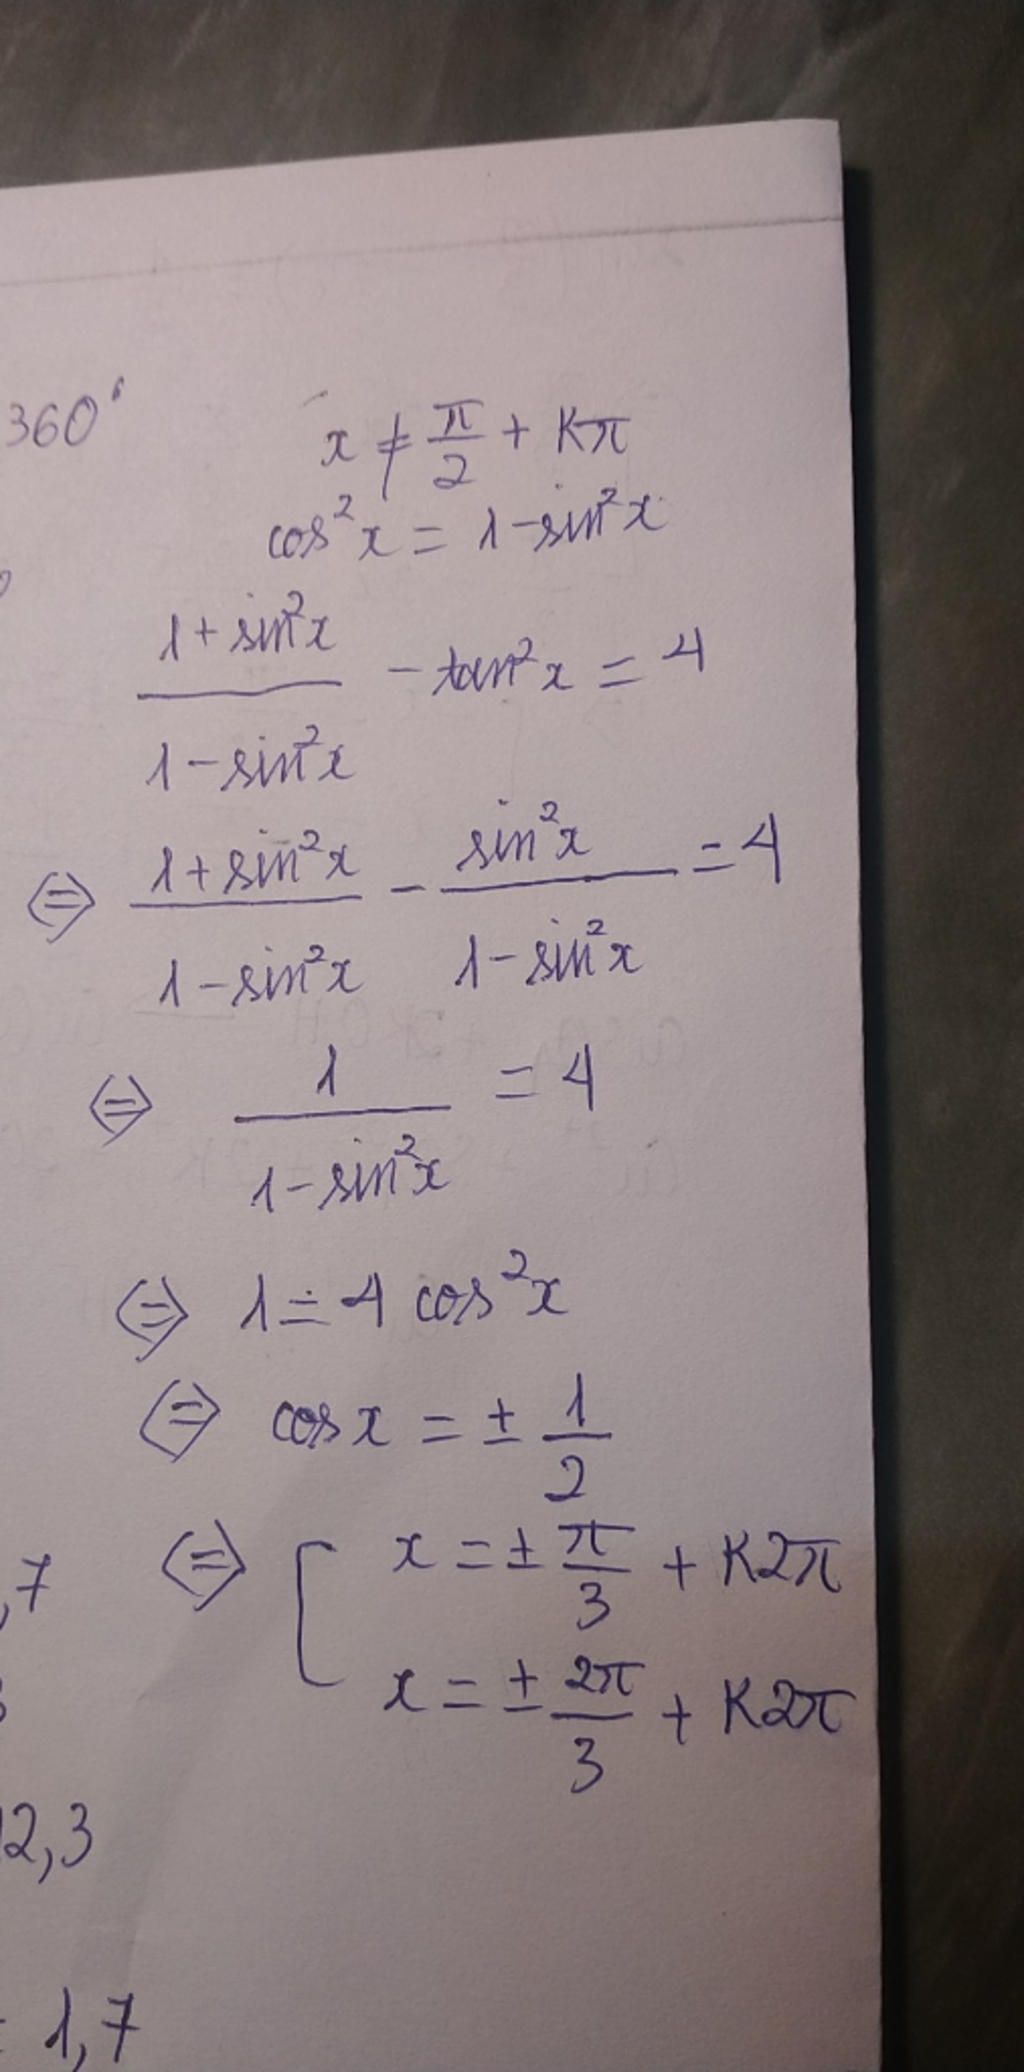 360°
x ≠ π/2 + Kπ
cos²x = 1-sin²x
(1+sin²x)/(1-sin²x) - tan²x = 4
⇔ (1+sin²x)/(1-sin²x) - sin²x/(1-sin²x) = 4
⇔ 1/(1-sin²x) = 4
⇔ 1 = 4 cos²x
⇔ cos x = ± 1/2
,7 ⇔ [ x = ± π/3 + K2π
x = ± 2π/3 + K2π
12,3
= 1,7